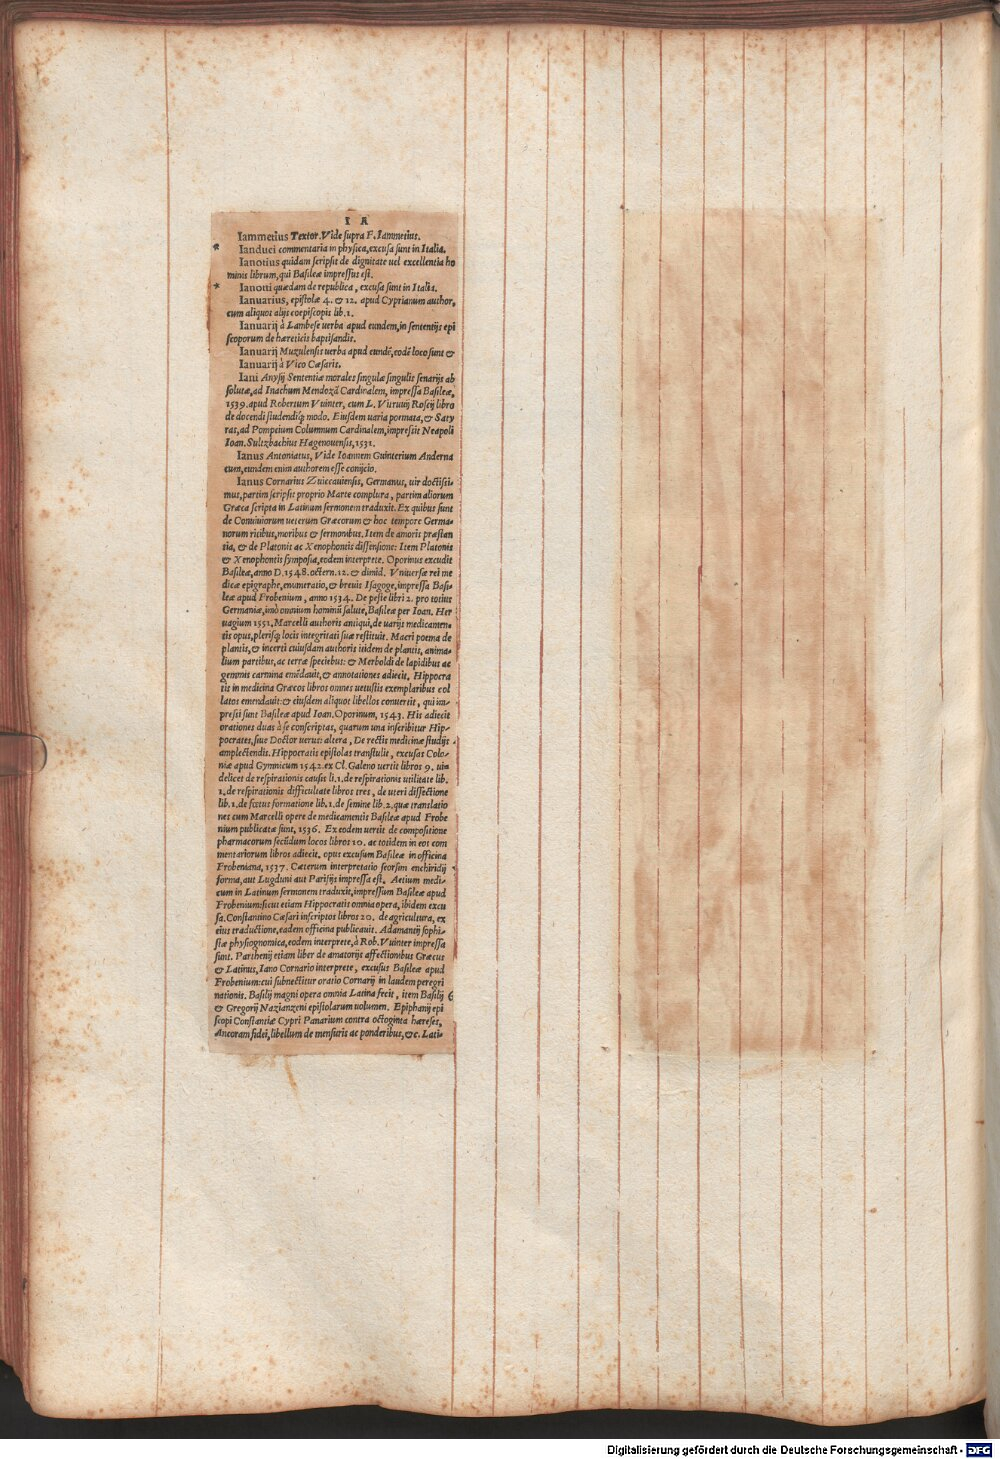 I A
Iammetius Textor. Vide supra F. Iammetius.
* Ianduci commentaria in physica, excusa sunt in Italia.
Ianotius quidam scripsit de dignitate uel excellentia ho
minis librum, qui Basileæ impressus est.
* Ianotti quædam de republica, excusa sunt in Italia.
Ianuarius, epistolæ 4. & 12. apud Cyprianum author,
cum aliquot alijs coepiscopis lib. 1.
Ianuarij à Lambese uerba apud eundem, in sententijs epi
scoporum de hæreticis baptisandis.
Ianuarij Muzulensis uerba apud eundē, eodē loco sunt &
Ianuarij à Vico Cæsaris.
Iani Anysij Sententiæ morales singulæ singulis senarijs ab
solutæ, ad Inachum Mendozā Cardinalem, impressa Basileæ,
1539. apud Robertum Vuinter, cum L. Vitruuij Roscij libro
de docendi studendiq́; modo. Eiusdem uaria poemata, & Saty
ras, ad Pompeium Columnum Cardinalem, impressit Neapoli
Ioan. Sultzbachius Hagenouensis, 1531.
Ianus Antoniatus, Vide Ioannem Guinterium Anderna
cum, eundem enim authorem esse conijcio.
Ianus Cornarius Zuiccauiensis, Germanus, uir doctissi-
mus, partim scripsit proprio Marte complura, partim aliorum
Græca scripta in Latinum sermonem traduxit. Ex quibus sunt
de Conuiuiorum ueterum Græcorum & hoc tempore Germa-
norum ritibus, moribus & sermonibus. Item de amoris præstan
tia, & de Platonis ac Xenophontis dissensione: Item Platonis
& Xenophontis symposia, eodem interprete. Oporinus excudit
Basileæ, anno D. 1548. octern. 12. & dimid. Vniuersæ rei me
dicæ epigraphe, enumeratio, & breuis Isagoge, impressa Basi-
leæ apud Frobenium, anno 1534. De peste libri 2. pro totius
Germaniæ, imò omnium hominū salute, Basileæ per Ioan. Her
uagium 1551. Marcelli authoris antiqui, de uarijs medicamen-
tis opus, plerisq́; locis integritati suæ restituit. Macri poema de
plantis, & incerti cuiusdam authoris itidem de plantis, anima-
lium partibus, ac terræ speciebus: & Merboldi de lapidibus ac
gemmis carmina emēdauit, & annotationes adiecit, Hippocra
tis in medicina Græcos libros omnes uetustis exemplaribus col
latos emendauit: & eiusdem aliquot libellos conuertit, qui im-
pressi sunt Basileæ apud Ioan. Oporinum, 1543. His adiecit
orationes duas à se conscriptas, quarum una inscribitur Hip-
pocrates, siue Doctor uerus: altera, De rectis medicinæ studijs
amplectendis. Hippocratis epistolas transtulit, excusas Colo-
niæ apud Gymnicum 1542. ex Cl. Galeno uertit libros 9. uia
delicet de respirationis causis li. 1. de respirationis utilitate lib.
1. de respirationis difficultate libros tres, de uteri dissectione
lib. 1. de fœtus formatione lib. 1. de semine lib. 2. quæ translatio
nes cum Marcelli opere de medicamentis Basileæ apud Frobe
nium publicatæ sunt, 1536. Ex eodem uertit de compositione
pharmacorum secūdum locos libros 10. ac totidem in eos com
mentariorum libros adiecit. opus excusum Basileæ in officina
Frobeniana, 1537. Cæterum interpretatio seorsim enchiridij
forma, aut Lugduni aut Parisijs impressa est. Aetium medi-
cum in Latinum sermonem traduxit, impressum Basileæ apud
Frobenium: sicut etiam Hippocratis omnia opera, ibidem excu
sa. Constantino Cæsari inscriptos libros 20. de agricultura, ex
eius traductione, eadem officina publicauit. Adamantij sophi-
stæ physiognomica, eodem interprete, à Rob. Vuinter impressa
sunt. Parthenij etiam liber de amatorijs affectionibus Græcus
& Latinus, Iano Cornario interprete, excusus Basileæ apud
Frobenium: cui subnectitur oratio Cornarij in laudem peregri
nationis. Basilij magni opera omnia Latina fecit, item Basilij
& Gregorij Nazianzeni epistolarum uolumen. Epiphanij epi
scopi Constantiæ Cypri Panarium contra octoginta hæreses,
Ancoram fidei, libellum de mensuris ac ponderibus, &c. Lati-
Digitalisierung gefördert durch die Deutsche Forschungsgemeinschaft - DFG